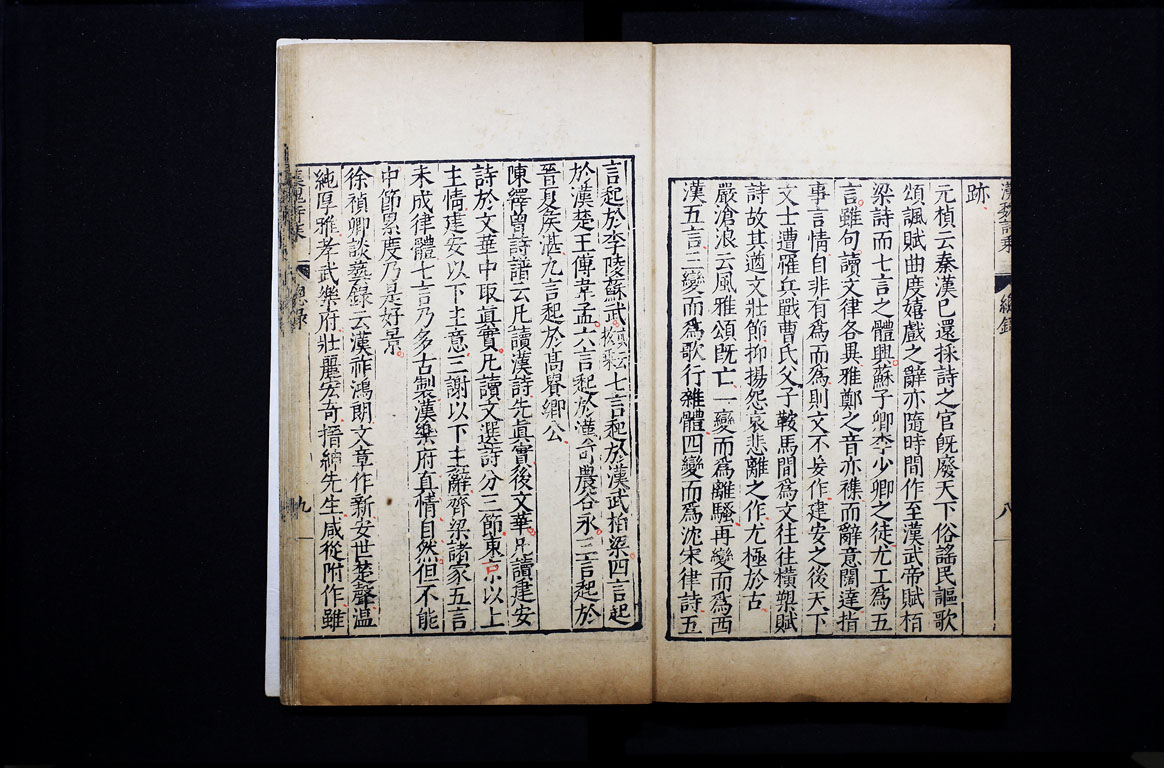 漢魏詩乘
總錄
八
跡
元楨云秦漢已還採詩之官旣廢天下俗謠民謳歌
頌諷賦曲度嬉戲之辭亦隨時間作至漢武帝賦栢
梁詩而七言之體興蘇子卿李少卿之徒尤工爲五
言雖句讀文律各異雅鄭之音亦襍而辭意闊達指
事言情自非有爲而爲則文不妄作建安之後天下
文士遭罹兵戰曹氏父子鞍馬間爲文往往橫槊賦
詩故其遒文壯節抑揚怨哀悲離之作尤極於古
嚴滄浪云風雅頌旣亡一變而爲離騷再變而爲西
漢五言三變而爲歌行雜體四變而爲沈宋律詩五
言起於李陵蘇武七言起於漢武栢梁四言起
於漢楚王傅韋孟六言起於漢司農谷永三言起於
晉夏侯湛九言起於高貴鄉公
陳繹曾詩譜云凡讀漢詩先眞實後文華凡讀建安
詩於文華中取眞實凡讀文選詩分三節東京以上
主情建安以下主意三謝以下主辭齊梁諸家五言
未成律體七言乃多古製漢樂府真情自然但不能
中節累度乃是好景
徐禎卿談藝錄云漢祚鴻朗文章作新安世楚聲溫
純厚雅孝武樂府壯麗宏奇搢紳先生咸從附作雖
漢魏詩乘
總錄
九